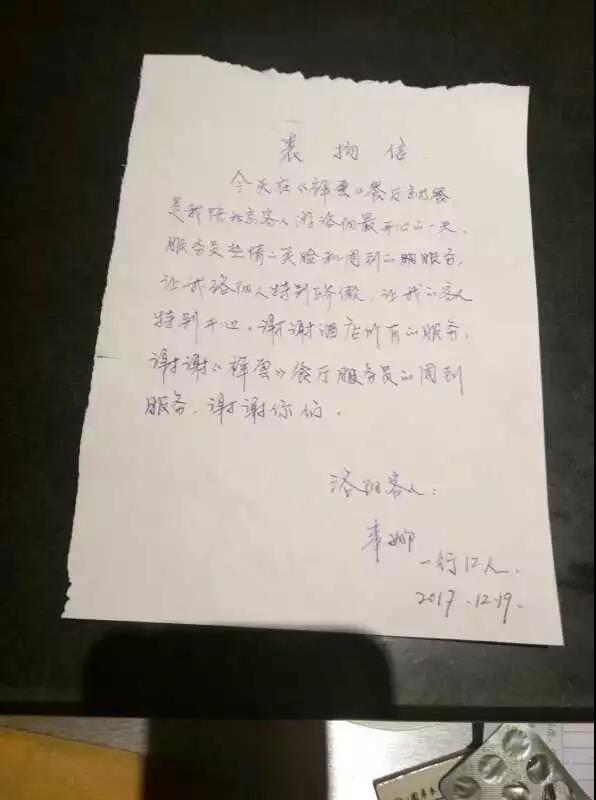 表扬信
今天在《禅云》餐厅就餐
是我陪北京客人游洛阳最开心的一天.
服务员热情的笑脸和周到的服务,
让我洛阳人特别骄傲, 让我的客人
特别开心, 谢谢酒店所有的服务,
谢谢《禅云》餐厅服务员的周到
服务, 谢谢你们.
洛阳客人:
一行12人.
2017.12.19.